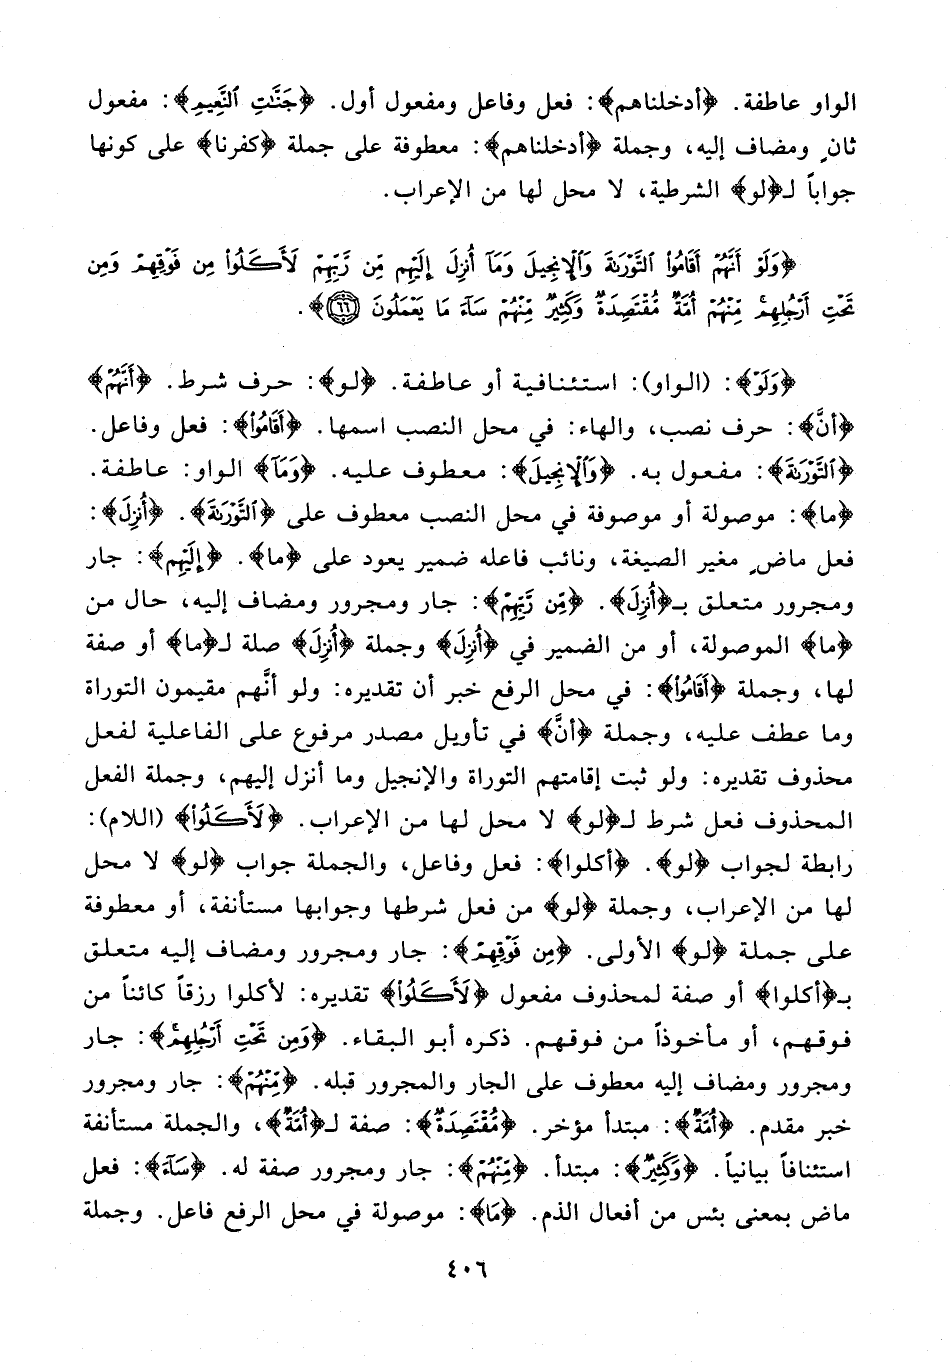 الواو عاطفة. ﴿أدخلناهم﴾: فعل وفاعل ومفعول أول. ﴿جَنَّاتِ ٱلنَّعِيمِ﴾: مفعول
ثانٍ ومضاف إليه، وجملة ﴿أدخلناهم﴾: معطوفة على جملة ﴿كفرنا﴾ على كونها
جواباً لـ﴿لو﴾ الشرطية، لا محل لها من الإعراب.
﴿وَلَوْ أَنَّهُمْ أَقَامُوا۟ ٱلتَّوْرَىٰةَ وَٱلْإِنجِيلَ وَمَآ أُنزِلَ إِلَيْهِم مِّن رَّبِّهِمْ لَأَكَلُوا۟ مِن فَوْقِهِمْ وَمِن
تَحْتِ أَرْجُلِهِم مِّنْهُمْ أُمَّةٌ مُّقْتَصِدَةٌ وَكَثِيرٌ مِّنْهُمْ سَآءَ مَا يَعْمَلُونَ ٦٦﴾.
﴿وَلَوْ﴾: (الواو): استئنافية أو عاطفة. ﴿لو﴾: حرف شرط. ﴿أَنَّهُمْ﴾
﴿أنَّ﴾: حرف نصب، والهاء: في محل النصب اسمها. ﴿أَقَامُوا۟﴾: فعل وفاعل.
﴿ٱلتَّوْرَىٰةَ﴾: مفعول به. ﴿وَٱلْإِنجِيلَ﴾: معطوف عليه. ﴿وَمَآ﴾ الواو: عاطفة.
﴿ما﴾: موصولة أو موصوفة في محل النصب معطوف على ﴿ٱلتَّوْرَىٰةَ﴾. ﴿أُنزِلَ﴾:
فعل ماضٍ مغير الصيغة، ونائب فاعله ضمير يعود على ﴿ما﴾. ﴿إِلَيْهِم﴾: جار
ومجرور متعلق بـ﴿أُنزِلَ﴾. ﴿مِّن رَّبِّهِمْ﴾: جار ومجرور ومضاف إليه، حال من
﴿ما﴾ الموصولة، أو من الضمير في ﴿أُنزِلَ﴾ وجملة ﴿أُنزِلَ﴾ صلة لـ﴿ما﴾ أو صفة
لها، وجملة ﴿أَقَامُوا۟﴾: في محل الرفع خبر أن تقديره: ولو أنَّهم مقيمون التوراة
وما عطف عليه، وجملة ﴿أنَّ﴾ في تأويل مصدر مرفوع على الفاعلية لفعل
محذوف تقديره: ولو ثبت إقامتهم التوراة والإنجيل وما أنزل إليهم، وجملة الفعل
المحذوف فعل شرط لـ﴿لو﴾ لا محل لها من الإعراب. ﴿لَأَكَلُوا۟﴾ (اللام):
رابطة لجواب ﴿لو﴾. ﴿أكلوا﴾: فعل وفاعل، والجملة جواب ﴿لو﴾ لا محل
لها من الإعراب، وجملة ﴿لو﴾ من فعل شرطها وجوابها مستأنفة، أو معطوفة
على جملة ﴿لو﴾ الأولى. ﴿مِن فَوْقِهِمْ﴾: جار ومجرور ومضاف إليه متعلق
بـ﴿أكلوا﴾ أو صفة لمحذوف مفعول ﴿لَأَكَلُوا۟﴾ تقديره: لأكلوا رزقاً كائناً من
فوقهم، أو مأخوذاً من فوقهم. ذكره أبو البقاء. ﴿وَمِن تَحْتِ أَرْجُلِهِم﴾: جار
ومجرور ومضاف إليه معطوف على الجار والمجرور قبله. ﴿مِّنْهُمْ﴾: جار ومجرور
خبر مقدم. ﴿أُمَّةٌ﴾: مبتدأ مؤخر. ﴿مُّقْتَصِدَةٌ﴾: صفة لـ﴿أُمَّةٌ﴾، والجملة مستأنفة
استئنافاً بيانياً. ﴿وَكَثِيرٌ﴾: مبتدأ. ﴿مِّنْهُمْ﴾: جار ومجرور صفة له. ﴿سَآءَ﴾: فعل
ماض بمعنى بئس من أفعال الذم. ﴿مَا﴾: موصولة في محل الرفع فاعل. وجملة
٤٠٦